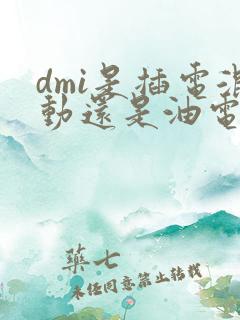 dmi是插電混
動還是油電
藥七
未經同意禁止轉載